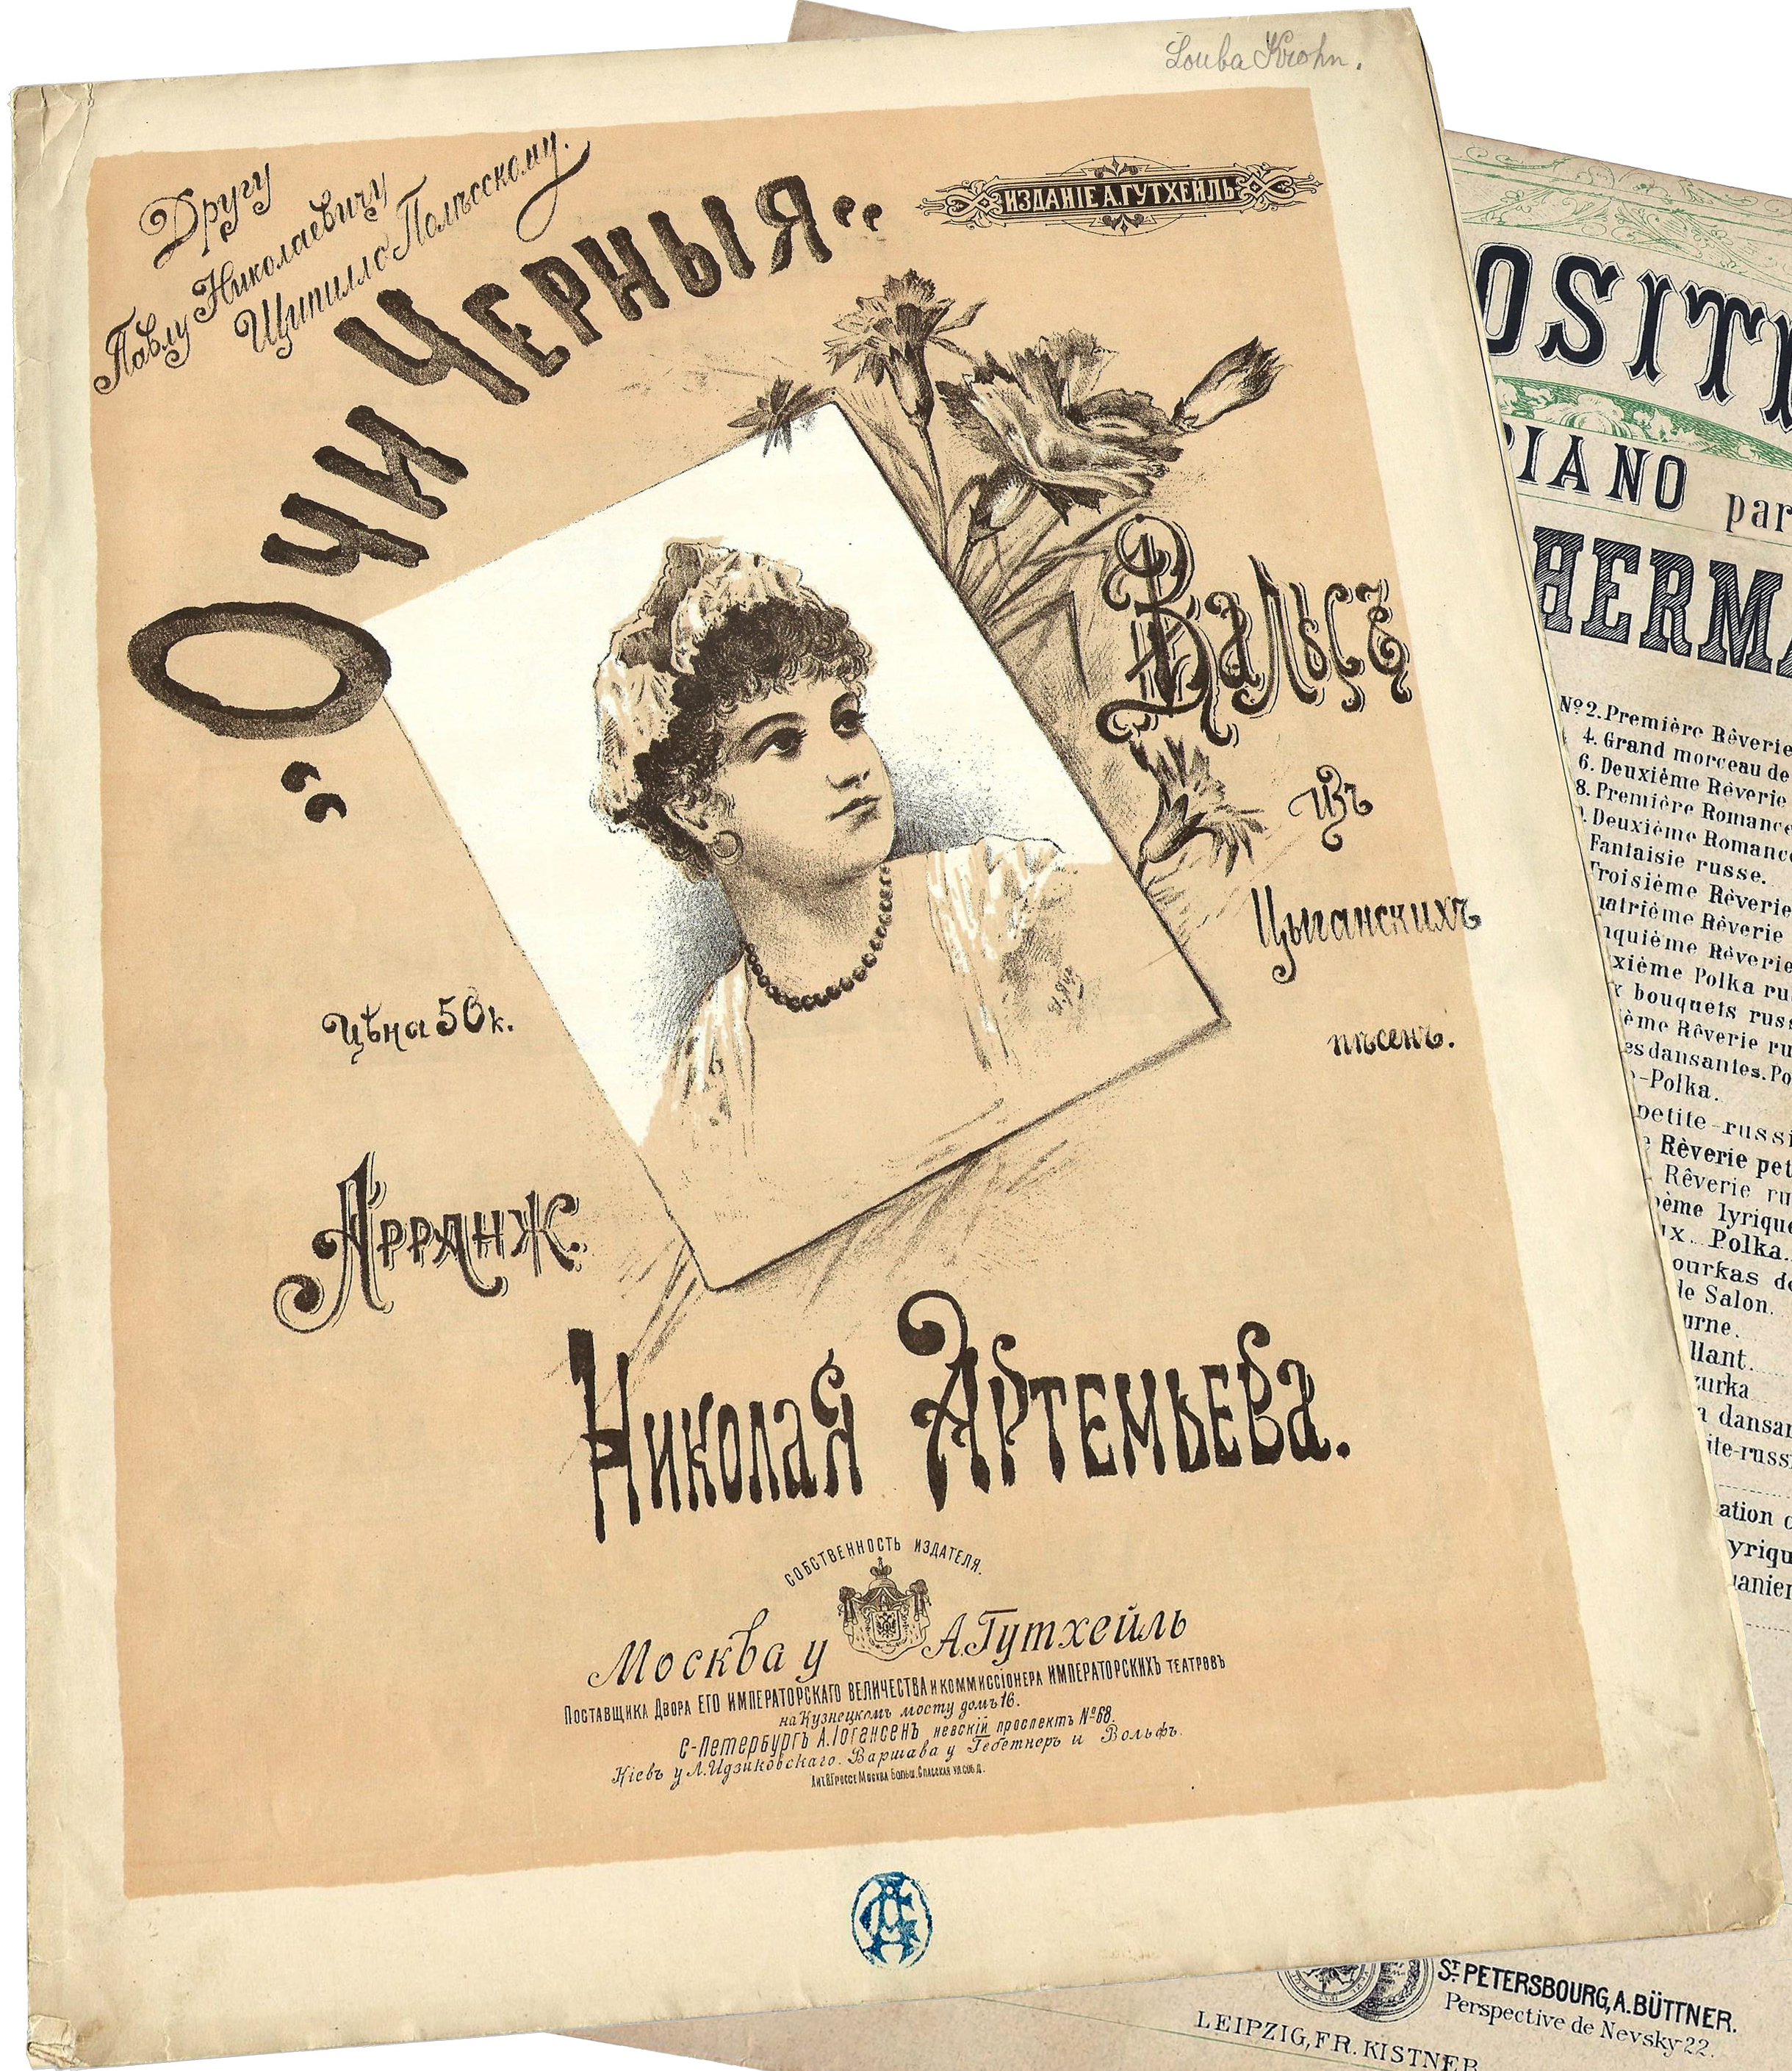 Louba Krohn.
Другу
Павлу Николаевичу
Щипилло-Полѣсскому.
ИЗДАНІЕ А. ГУТХЕЙЛЬ
„Очи Черныя“
Вальсъ
изъ
Цыганскихъ
пѣсенъ.
Цѣна 50 к.
Арранж.
Николая Артемьева.
СОБСТВЕННОСТЬ ИЗДАТЕЛЯ.
Москва у А. Гутхейль
Поставщика Двора ЕГО ИМПЕРАТОРСКАГО ВЕЛИЧЕСТВА и коммиссіонера ИМПЕРАТОРСКИХЪ театровъ
на Кузнецкомъ мосту домъ 16.
С-Петербургъ А. Іогансенъ невскій проспектъ № 68.
Кіевъ у Л. Идзиковскаго. Варшава у Гебетнеръ и Вольфъ.
Лит. В. Гроссе Москва Больш. Спасская ул. соб. д.
OSITI
PIANO par
HERMA
№ 2. Première Rêverie
4. Grand morceau de
6. Deuxième Rêverie
8. Première Romance
Deuxième Romance
Fantaisie russe.
Troisième Rêverie
uatrième Rêverie
nquième Rêverie
xième Polka ru
x bouquets russ
ième Rêverie ru
es dansantes. Po
-Polka.
petite-russi
e Rêverie pet
Rêverie ru
oème lyrique
ux. Polka.
ourkas de
de Salon.
urne.
llant.
zurka
a dansan
ite-russ
ation d
yriqu
anien
ST. PETERSBOURG, A. BÜTTNER.
Perspective de Nevsky 22.
LEIPZIG, FR. KISTNER